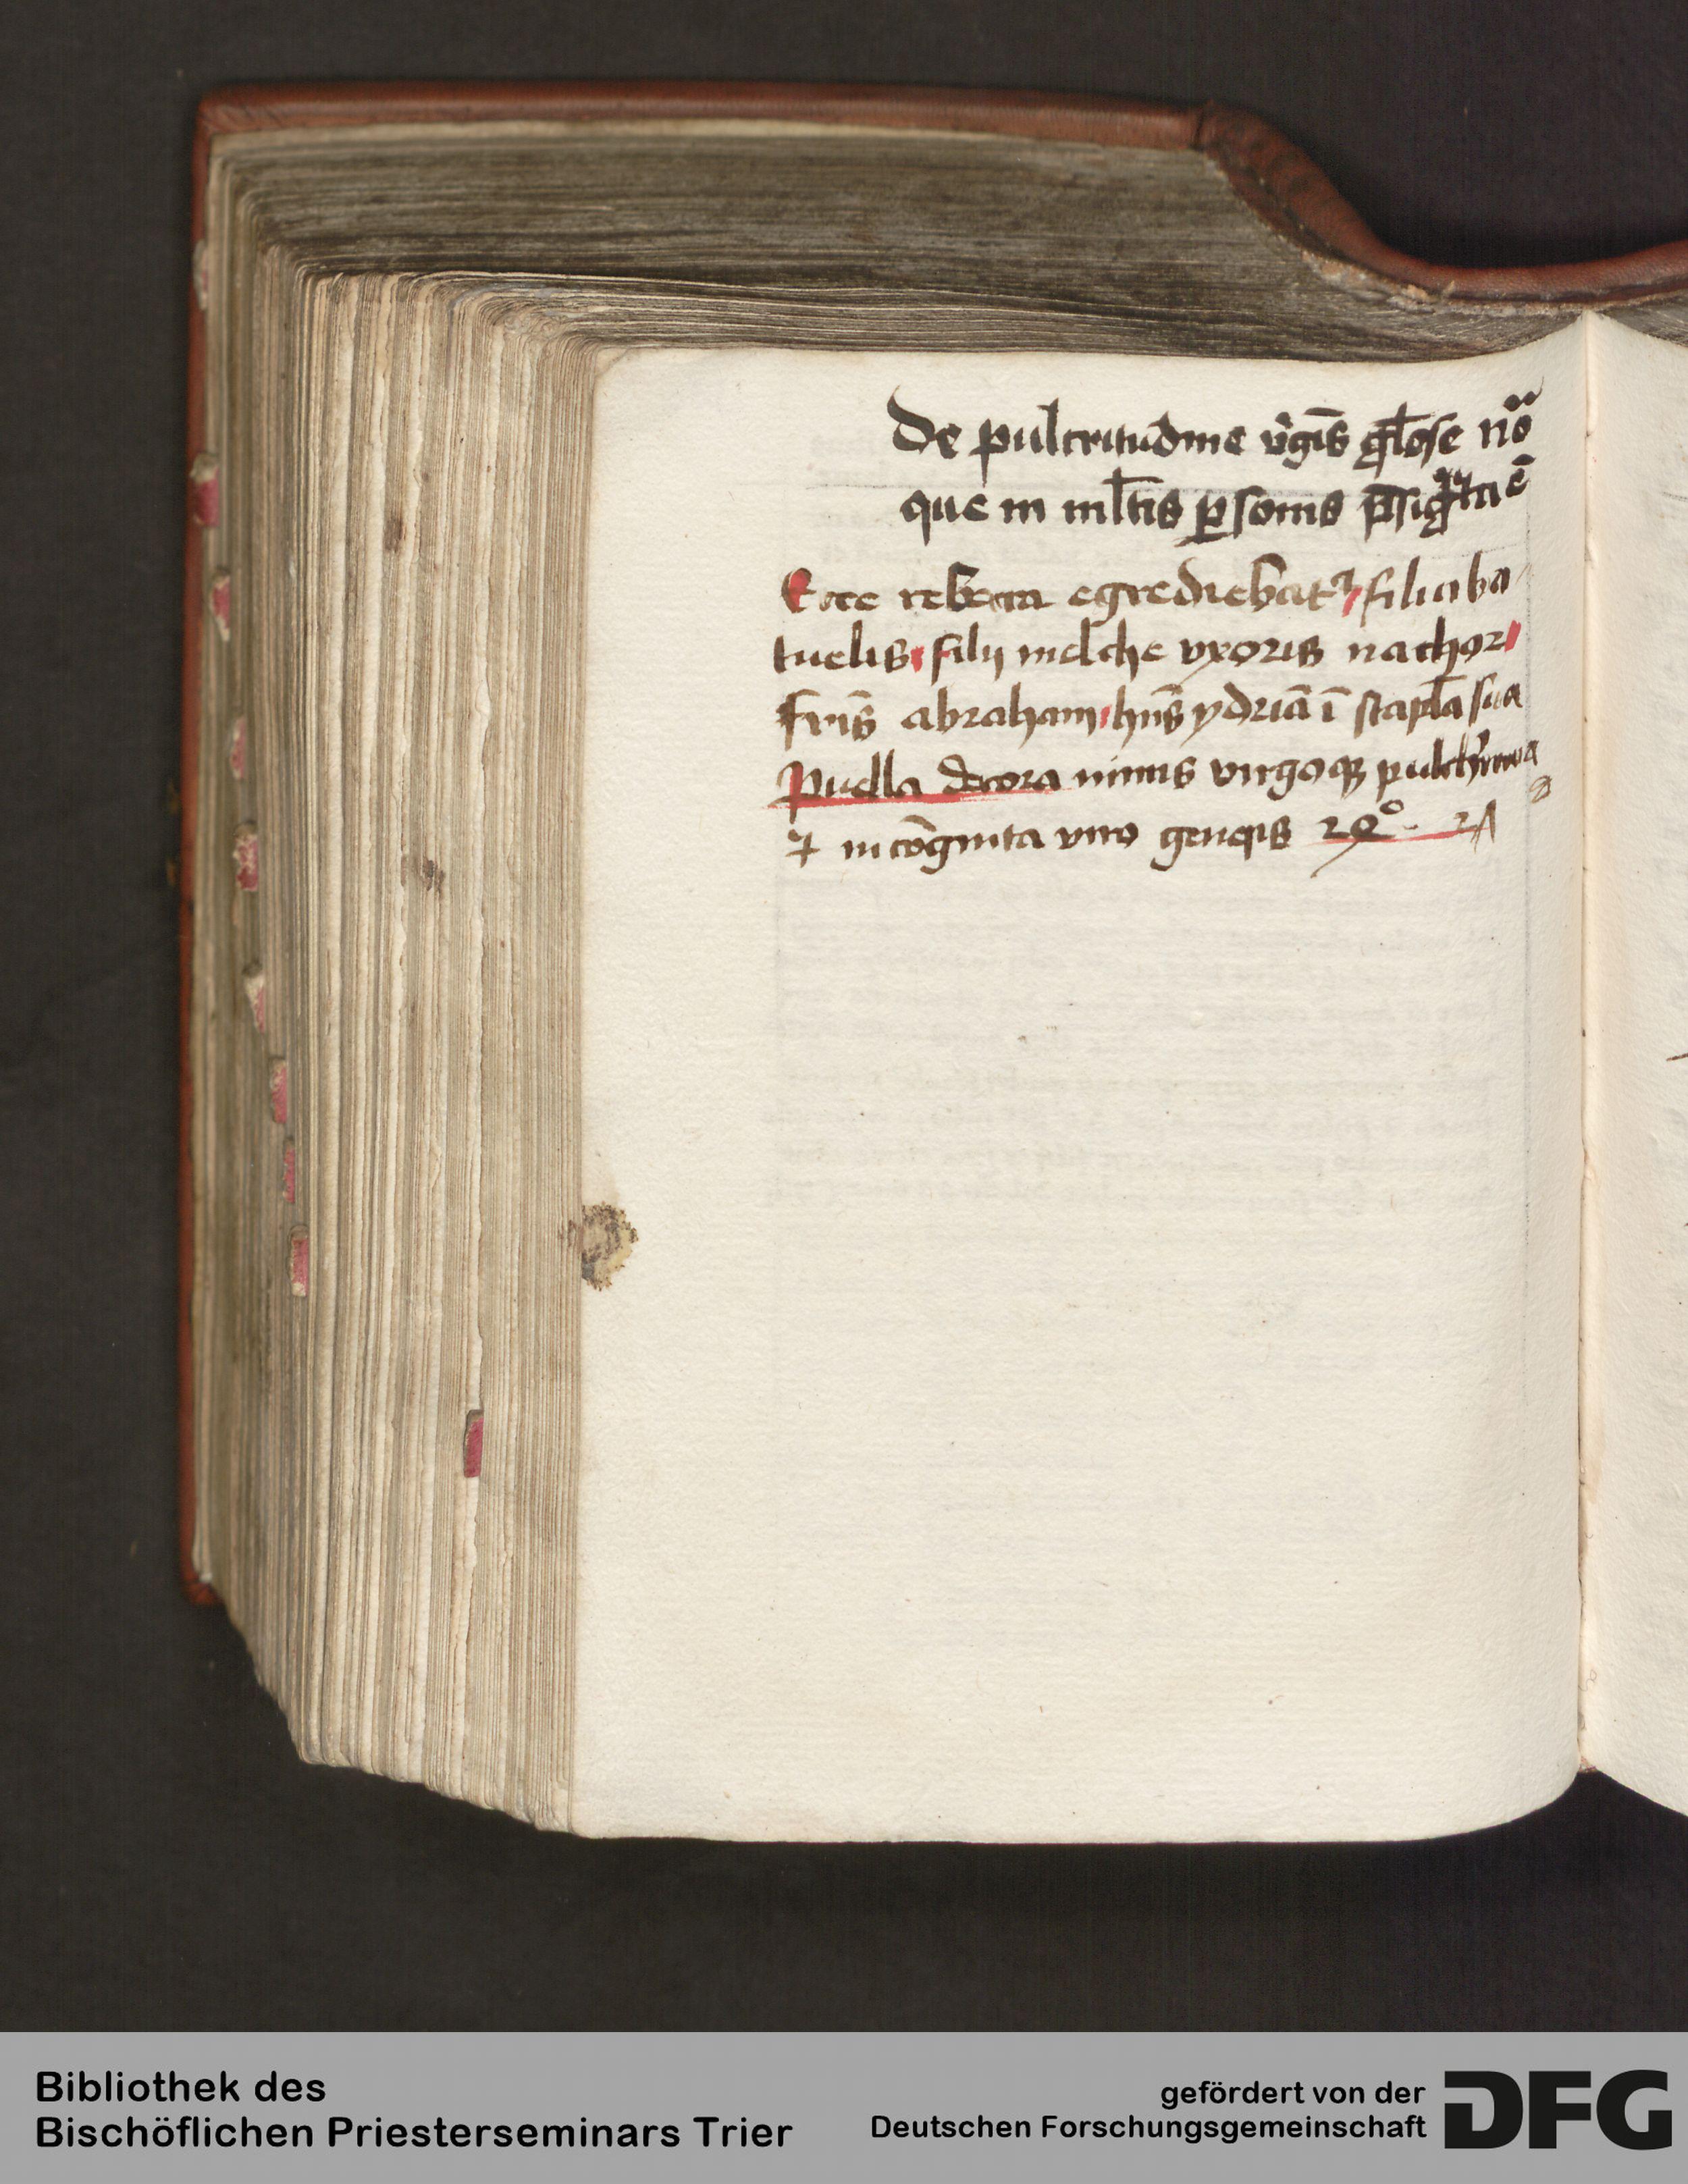 De pulcritudine v̓gīs gl̄ose nōͣ
que in ml̄tis ꝑsonis p̄sigͣta ē
Ecce rebecca egrediebatᷣ filia ba
tuelis filij melche vxoris nachor
fr̄is abraham hn̄s ydriā ī scapl̄a sua
Puella decora nimis virgoqꝫ pulch̓rima
⁊ incōgnita viro geneẜis 24°. A
Bibliothek des
Bischöflichen Priesterseminars Trier
gefördert von der
Deutschen Forschungsgemeinschaft
DFG